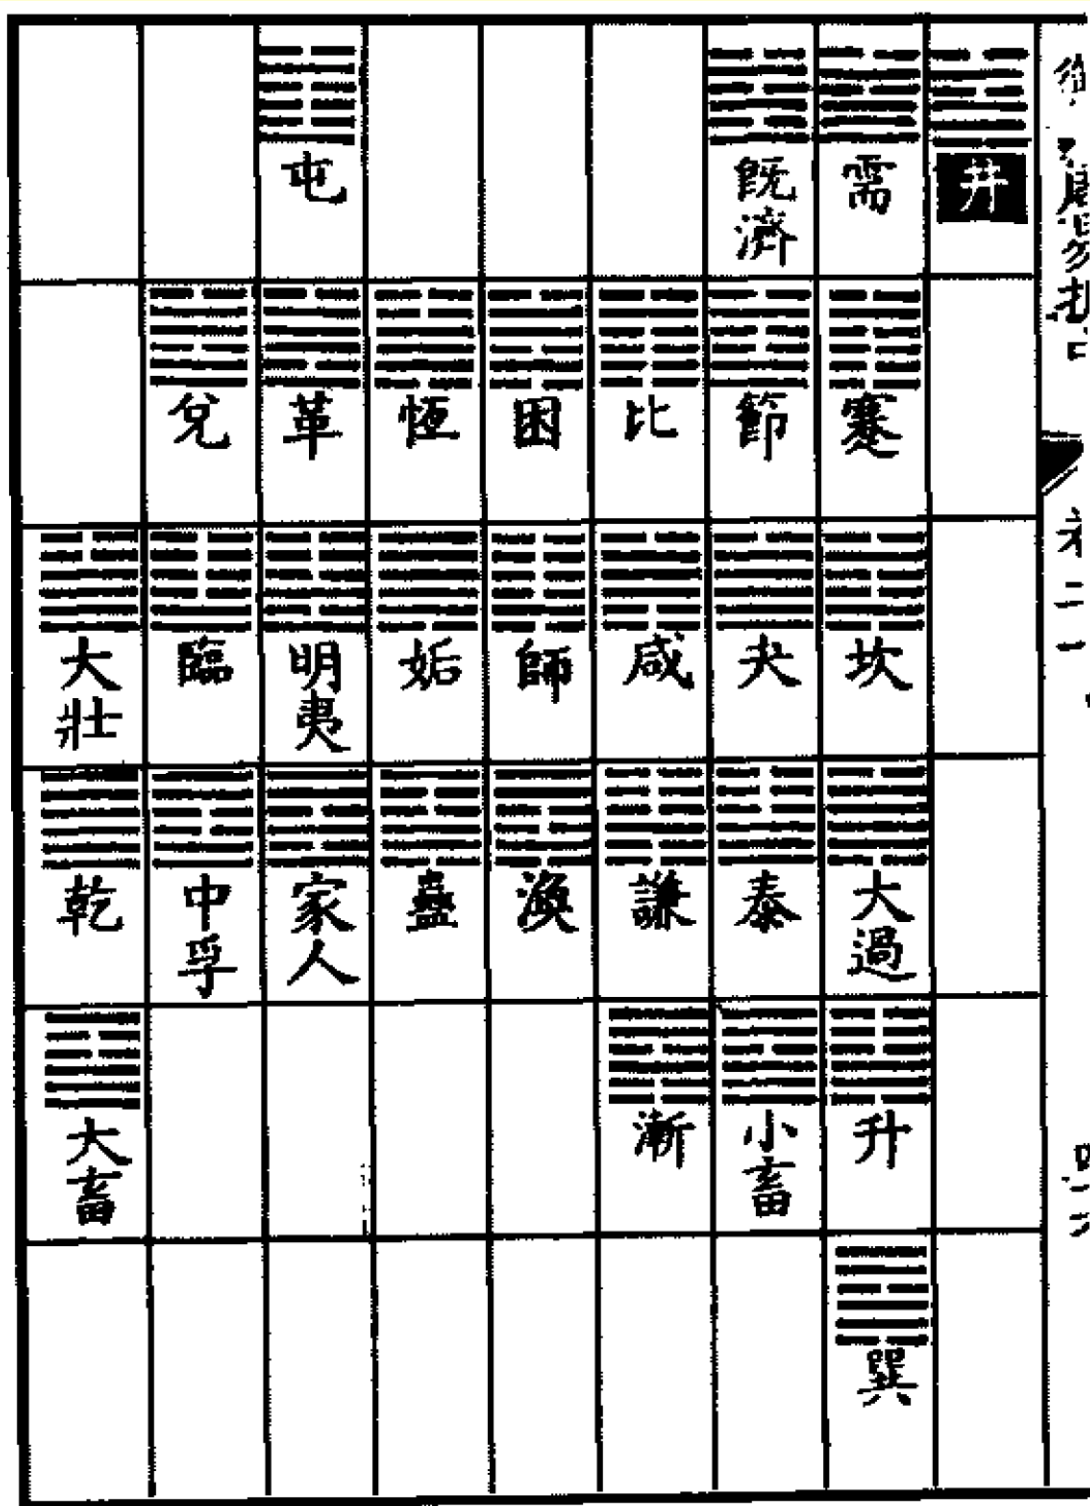 井
需
蹇
坎
大過
升
巽
既濟
節
夬
泰
小畜
比
咸
謙
漸
困
師
渙
恆
姤
蠱
屯
革
明夷
家人
兌
臨
中孚
大壯
乾
大畜